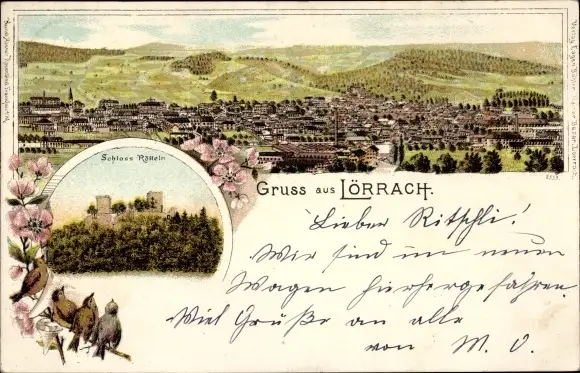 Schloss Rötteln
Gruss aus LÖRRACH.
Lieber Ritschli!
Wir sind im neuen
Wagen hierhergefahren
Viel Grüße an alle
von M. O.